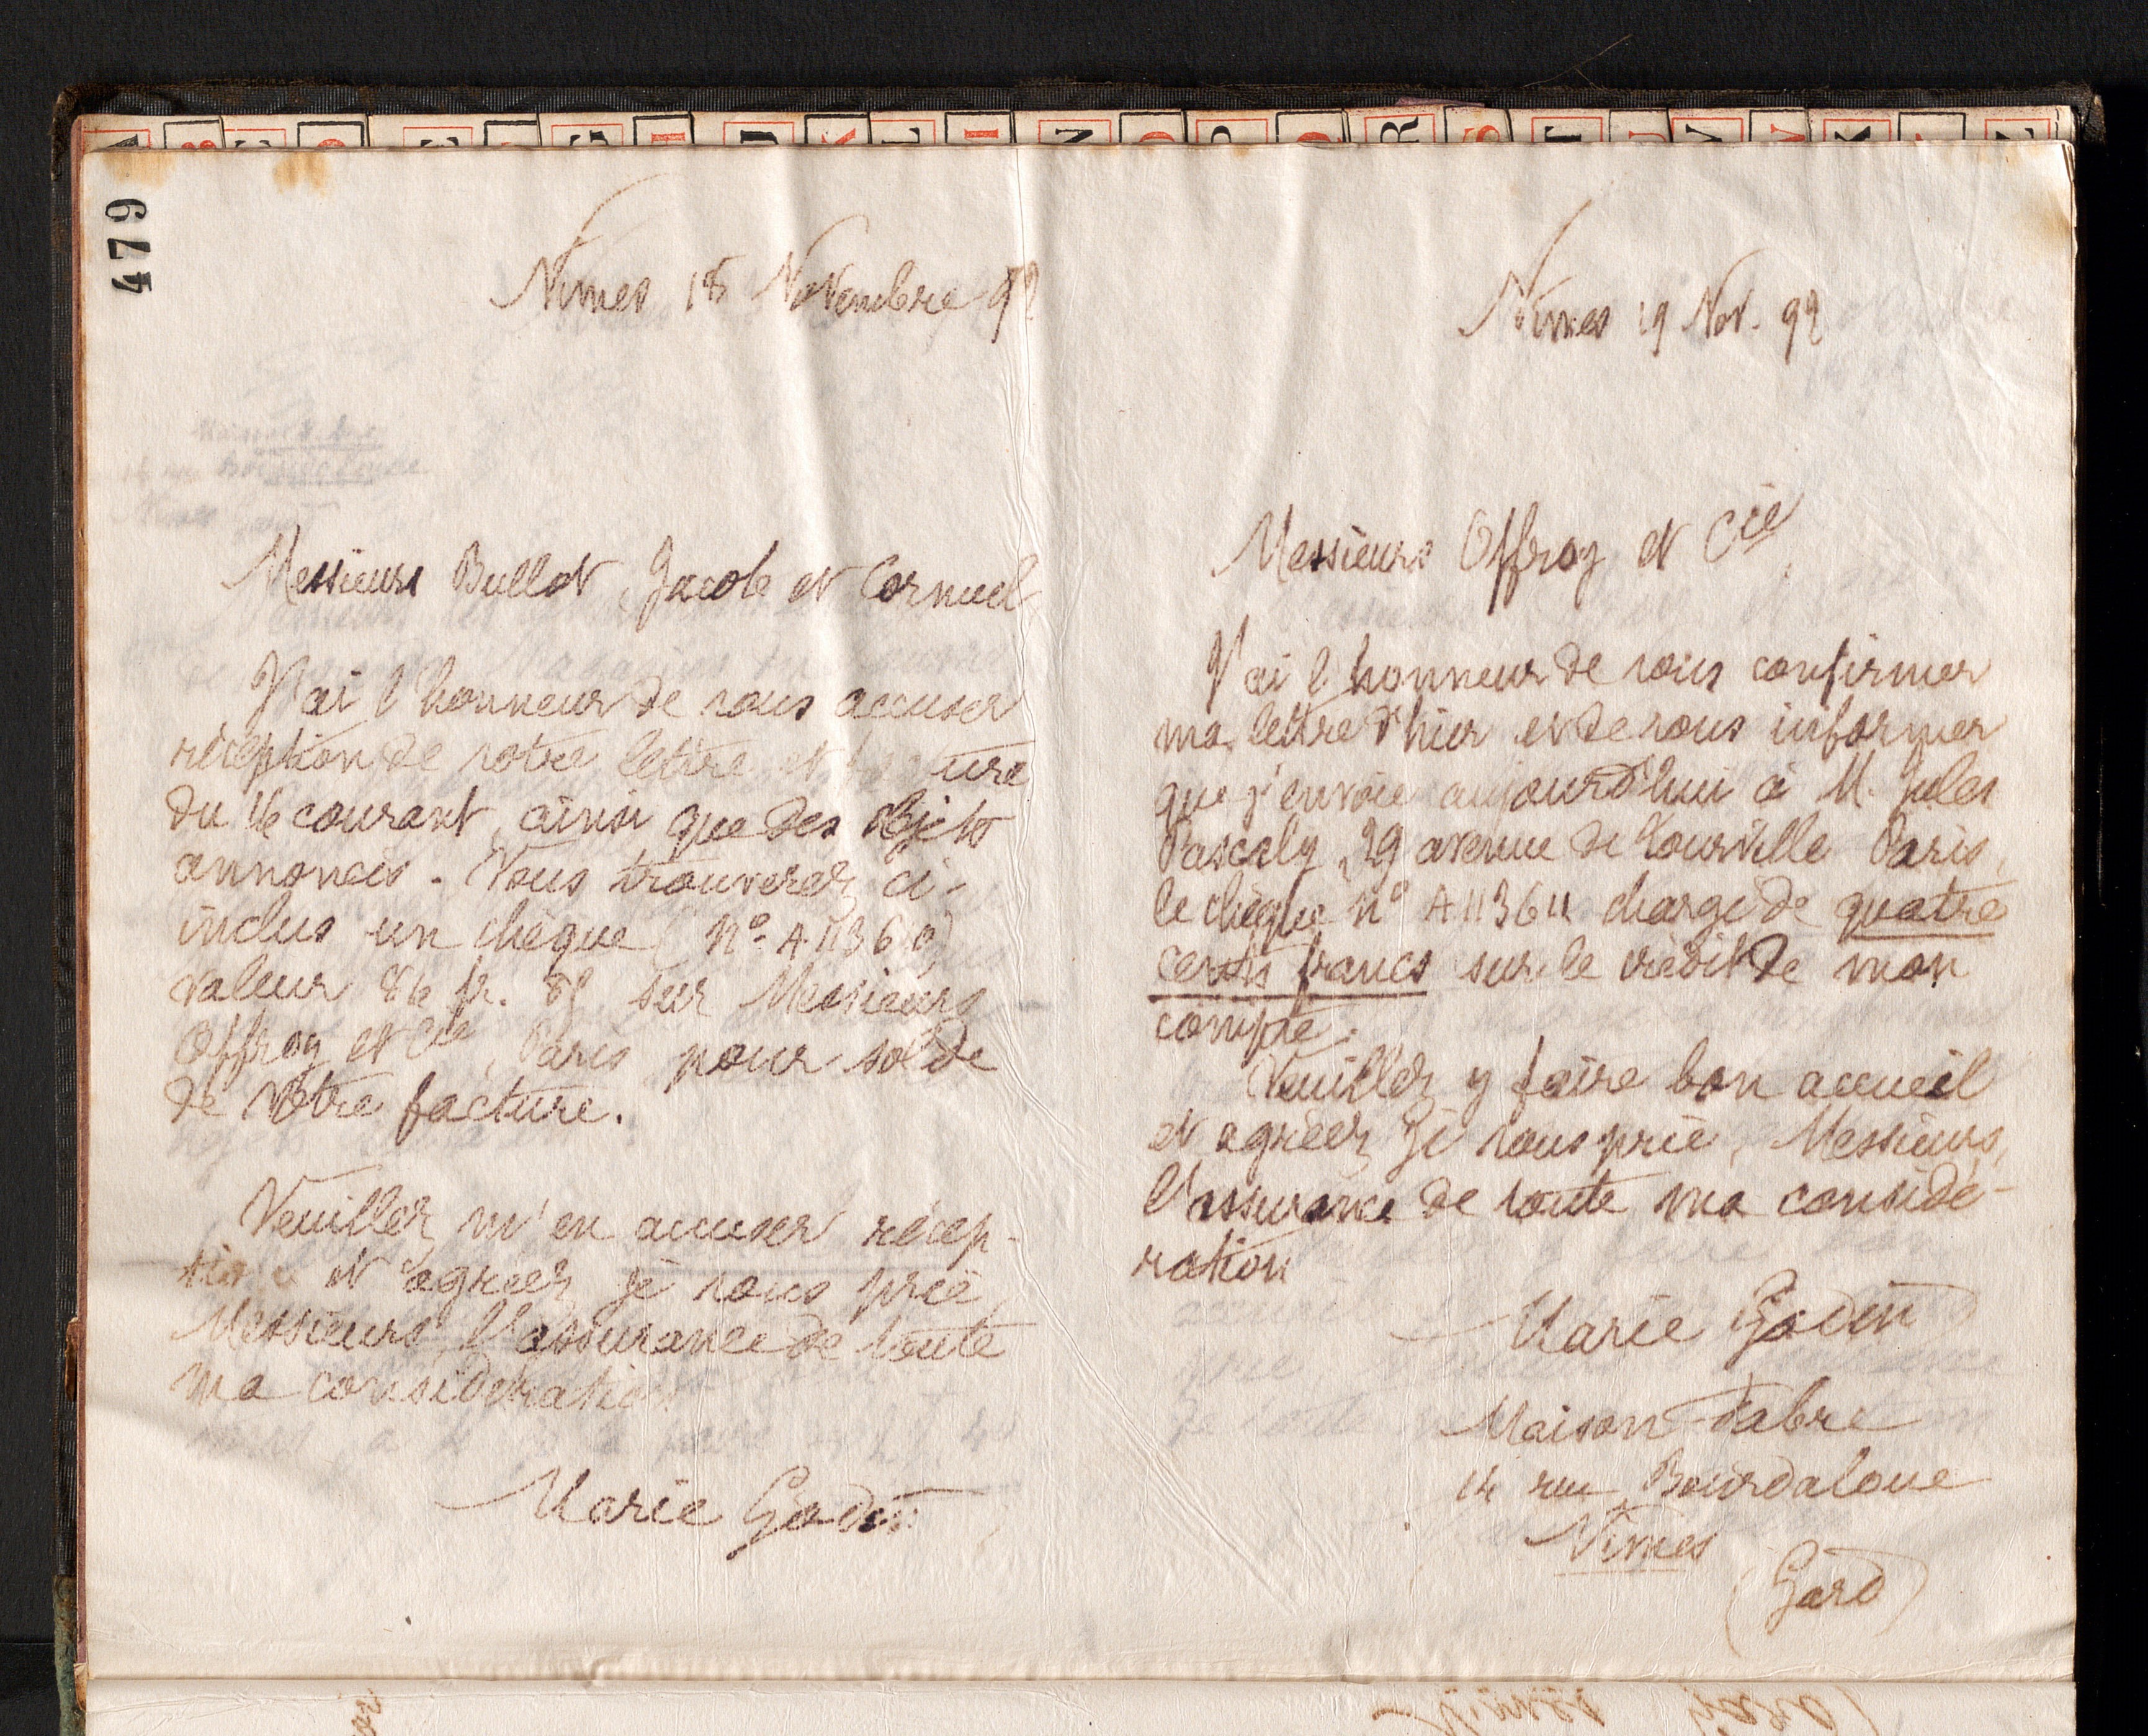 479
Nimes 18 Novembre 92
Messieurs Bullot, Jacob et Cornuel
J'ai l'honneur de vous accuser
réception de votre lettre et facture
du 16 courant, ainsi que des objets
annoncés. Vous trouverez ci-
inclus un chèque (n° A 11360)
valeur 86 fr. 85 sur Messieurs
Offroy et Cie, Paris pour solde
de votre facture.
Veuillez m'en accuser récep-
tion et agréer, je vous prie,
Messieurs, l'assurance de toute
ma considération
Marie Godin
Nimes 19 Nov. 92
Messieurs Offroy et Cie,
J'ai l'honneur de vous confirmer
ma lettre d'hier et de vous informer
que j'envoie aujourd'hui à M. Jules
Pascaly, 29 avenue de Tourville Paris,
le chèque n° A 11361 chargé de quatre
cents francs sur le crédit de mon
compte.
Veuillez y faire bon accueil
et agréer, je vous prie, Messieurs,
l'assurance de toute ma considé-
ration
Marie Godin
Maison Fabre
14 rue Bourdaloue
Nimes
(Gard)